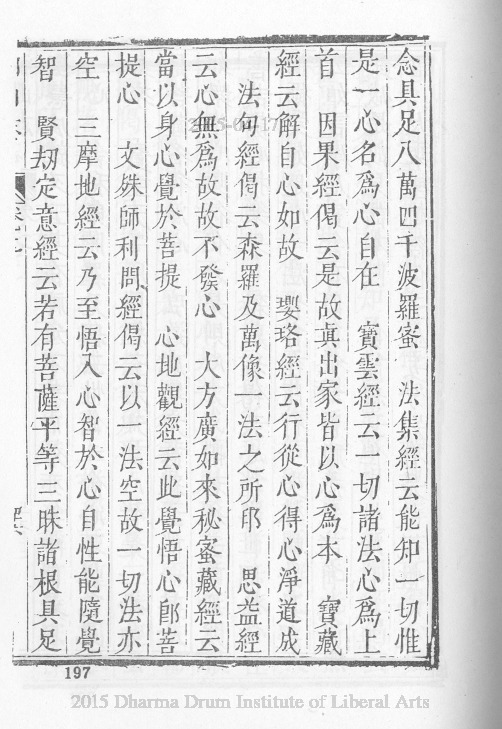 念具足八萬四千波羅蜜　法集經云能知一切惟
是一心名爲心自在　寶雲經云一切諸法心爲上
首　因果經偈云是故眞出家皆以心爲本　寶藏
經云解自心如故　瓔珞經云行從心得心淨道成
　法句經偈云森羅及萬像一法之所印　思益經
云心無爲故故不發心　大方廣如來秘蜜藏經云
當以身心覺於菩提　心地觀經云此覺悟心卽菩
提心　文殊師利問經偈云以一法空故一切法亦
空　三摩地經云乃至悟入心智於心自性能隨覺
智　賢劫定意經云若有菩薩平等三昧諸根具足
197
2015 Dharma Drum Institute of Liberal Arts